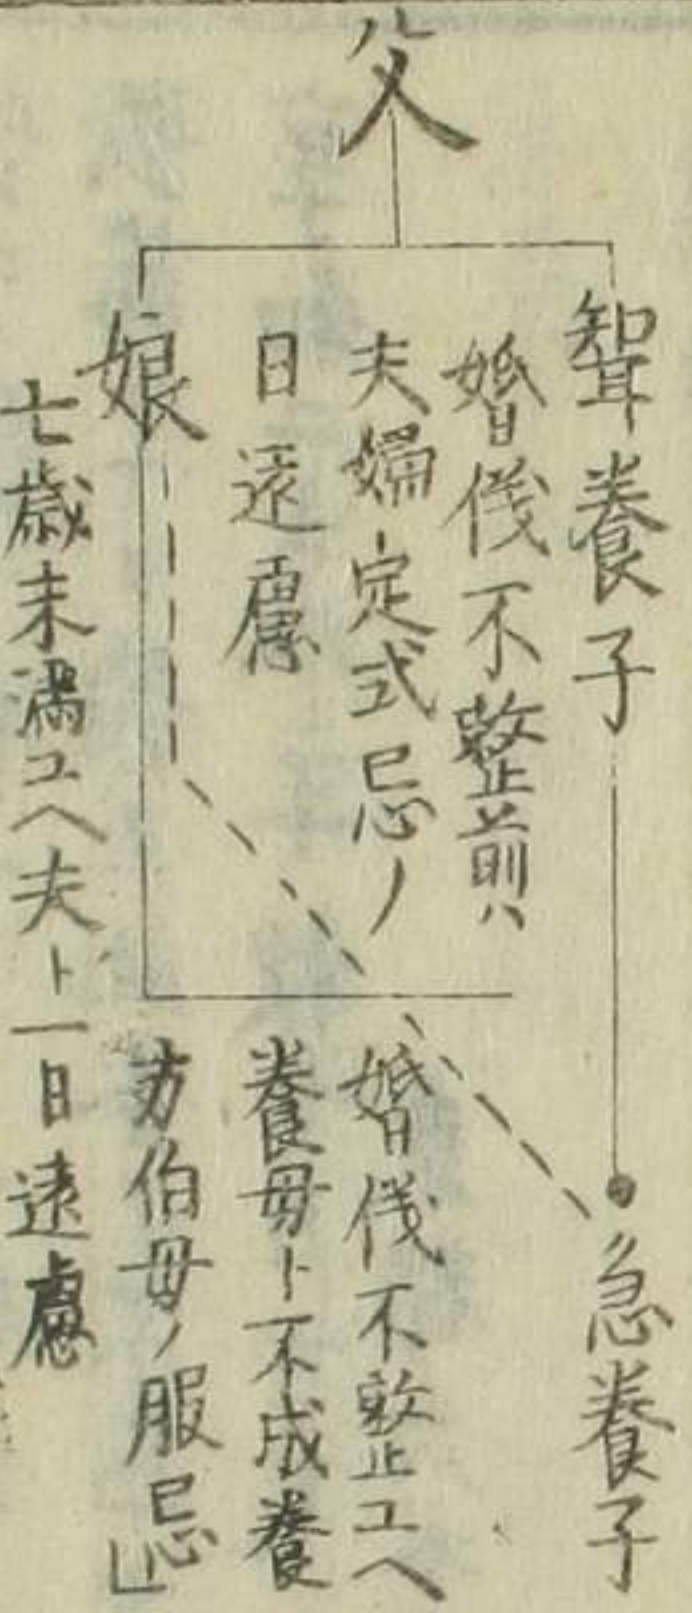 父
聟養子
婚儀不整前ハ
夫婦定式忌ノ
日遠慮
娘
七歳未満ユヘ夫ト一日遠慮
急養子
婚儀不整ユヘ
養母ト不成養
方伯母ノ服忌」